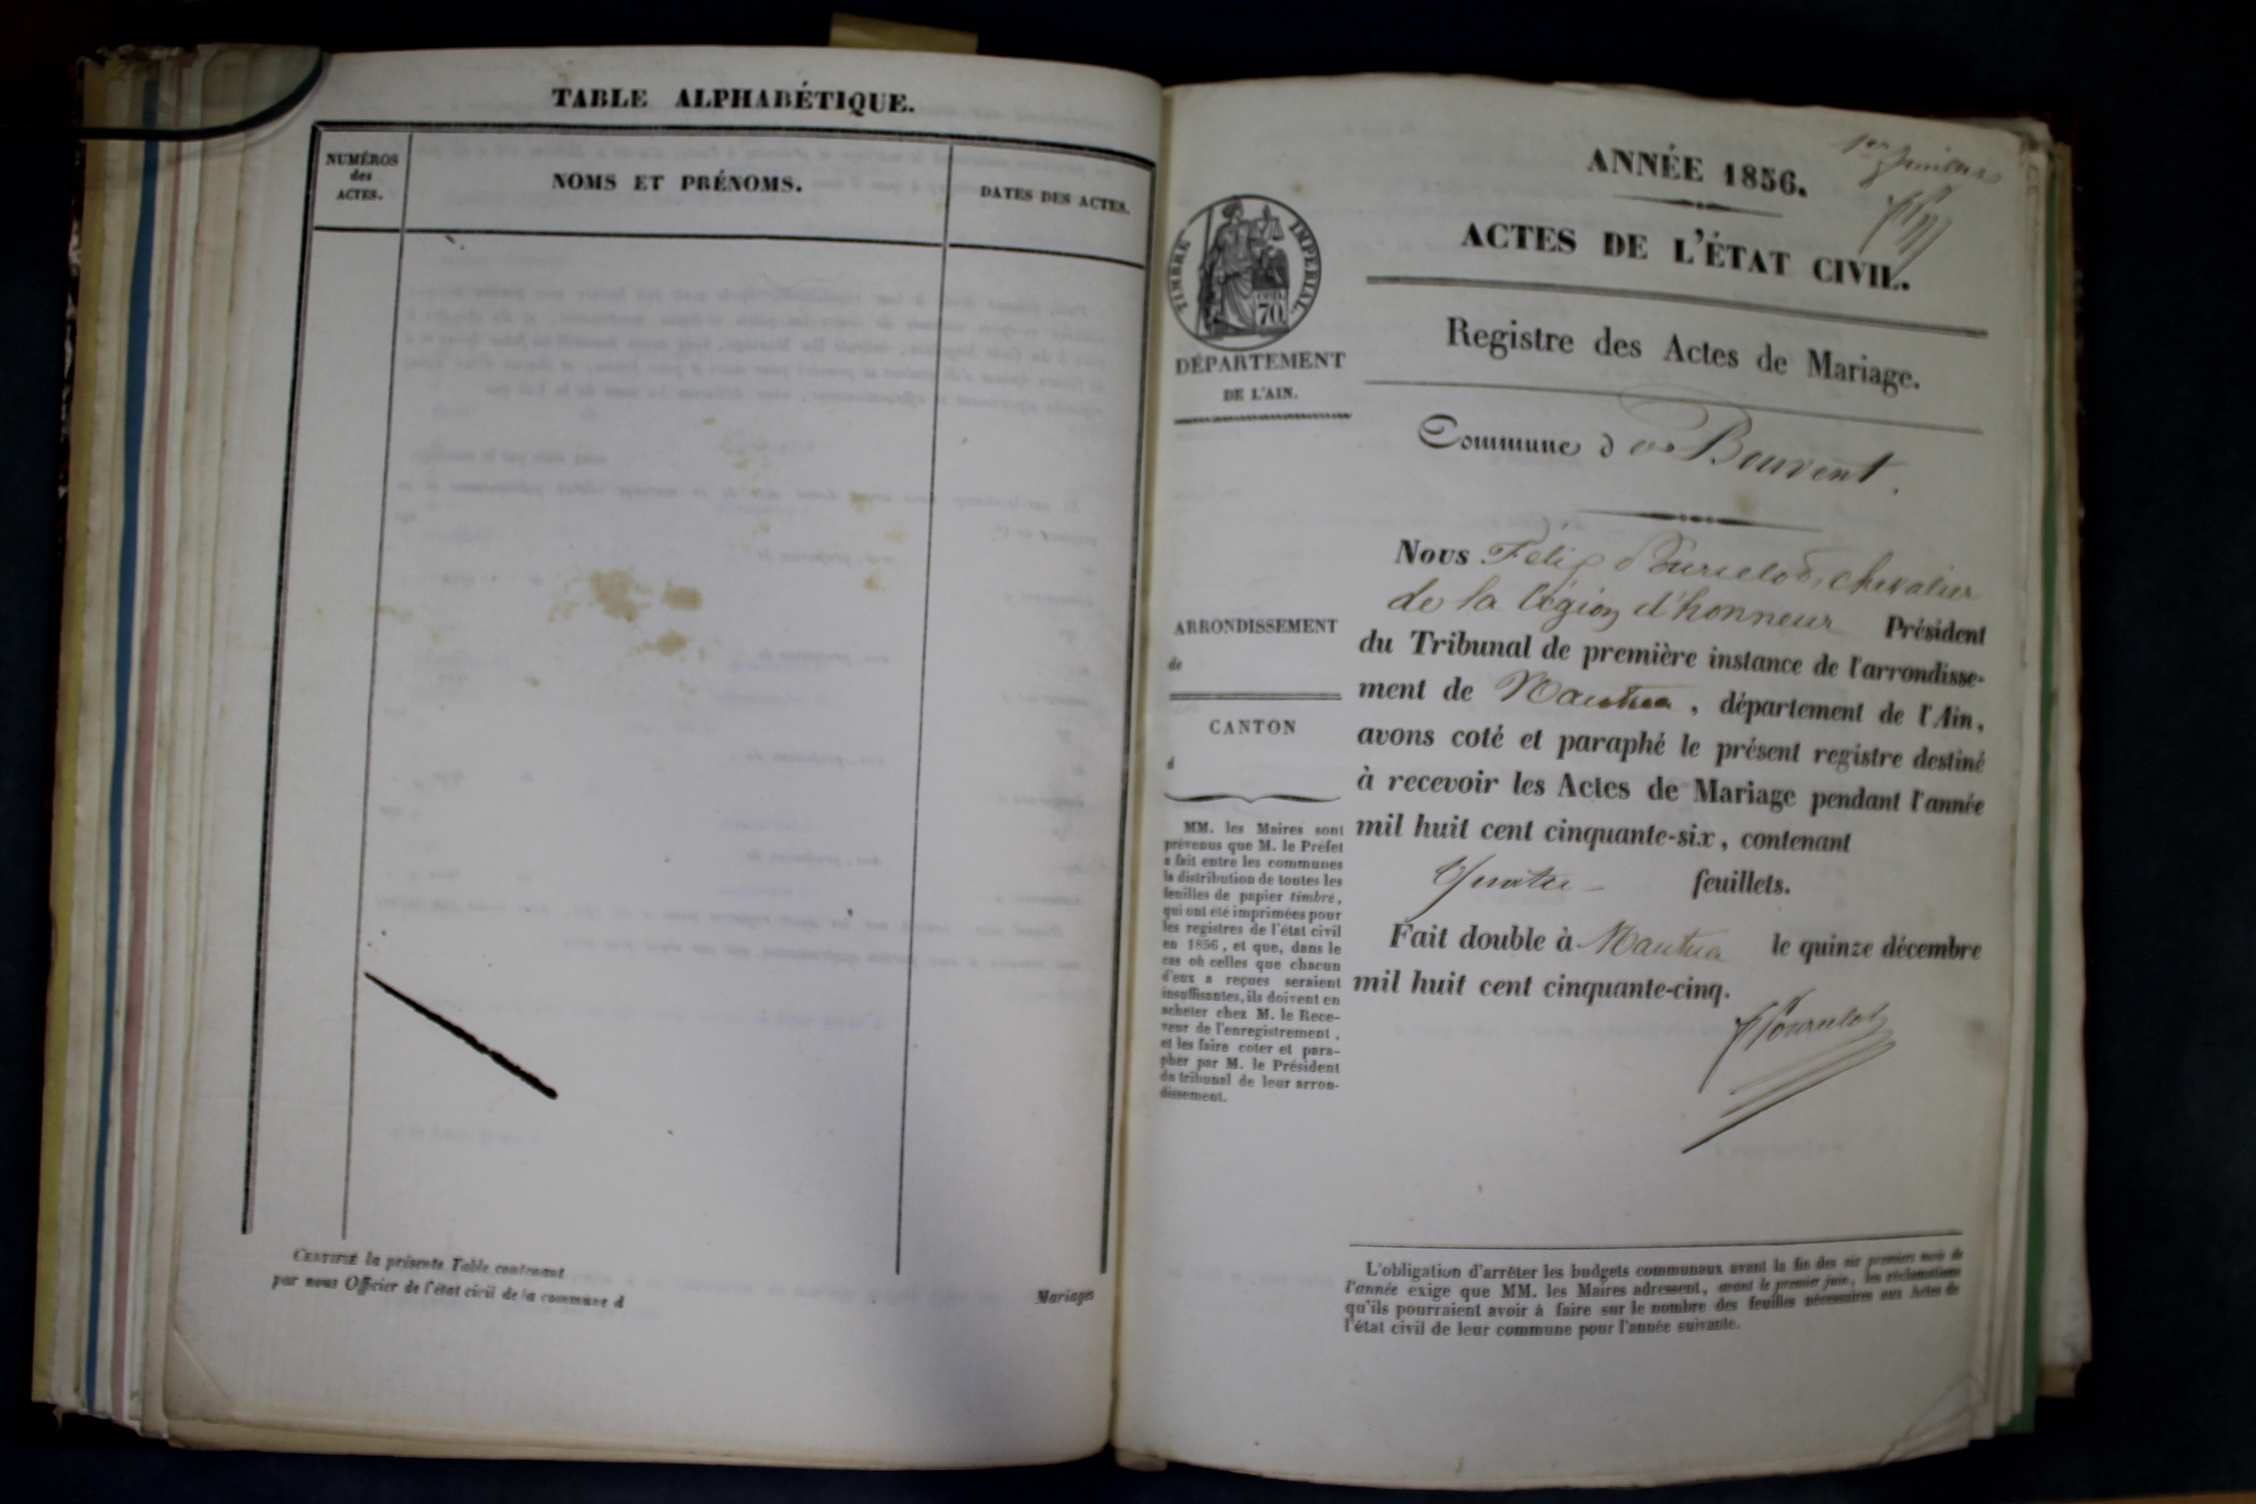 TABLE ALPHABÉTIQUE.
NUMÉROS
des
ACTES.
NOMS ET PRÉNOMS.
DATES DES ACTES.
CERTIFIÉ la présente Table contenant
par nous Officier de l'état civil de la commune d
Mariages
1er feuillet
ANNÉE 1856.
ACTES DE L'ÉTAT CIVIL.
TIMBRE IMPÉRIAL
70
DÉPARTEMENT
DE L'AIN.
Registre des Actes de Mariage.
Commune d e Bouvent.
Nous Félix chevalier
de la légion d'honneur Président
du Tribunal de première instance de l'arrondisse-
ment de Nantua, département de l'Ain,
avons coté et paraphé le présent registre destiné
à recevoir les Actes de Mariage pendant l'année
mil huit cent cinquante-six, contenant
quatre feuillets.
Fait double à Nantua le quinze décembre
mil huit cent cinquante-cinq.
ARRONDISSEMENT
de
CANTON
d
MM. les Maires sont
prévenus que M. le Préfet
a fait entre les communes
la distribution de toutes les
feuilles de papier timbré,
qui ont été imprimées pour
les registres de l'état civil
en 1856, et que, dans le
cas où celles que chacun
d'eux a reçues seraient
insuffisantes, ils doivent en
acheter chez M. le Rece-
veur de l'enregistrement,
et les faire coter et para-
pher par M. le Président
du tribunal de leur arron-
dissement.
L'obligation d'arrêter les budgets communaux avant la fin des six premiers mois de
l'année exige que MM. les Maires adressent, avant le premier juin, les réclamations
qu'ils pourraient avoir à faire sur le nombre des feuilles nécessaires aux Actes de
l'état civil de leur commune pour l'année suivante.